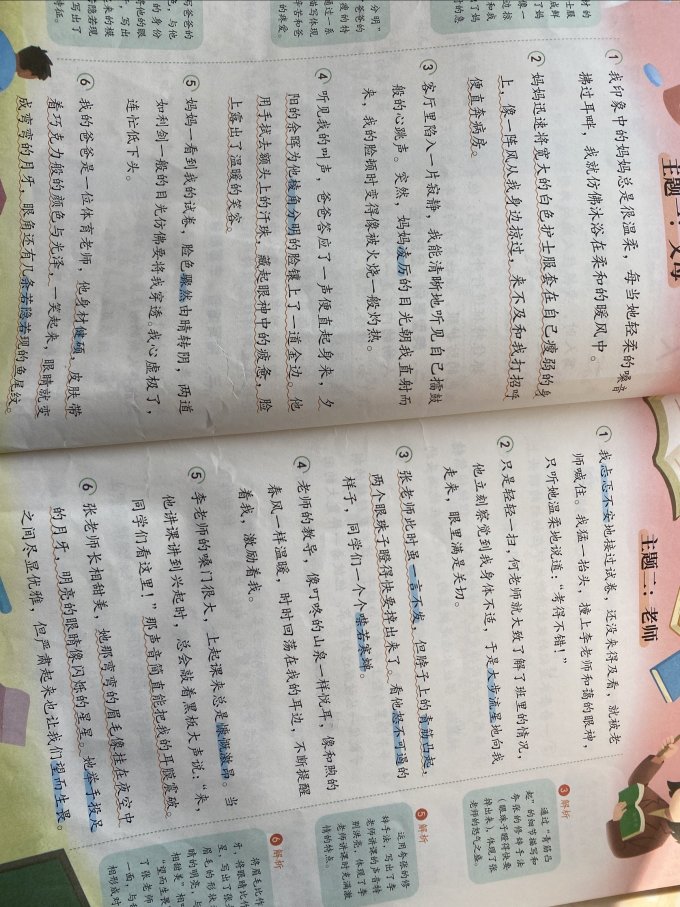 主题一：父母
① 我印象中的妈妈总是很温柔，每当她轻柔的嗓音
拂过耳畔，我就仿佛沐浴在柔和的暖风中。
② 妈妈迅速将宽大的白色护士服套在自己瘦弱的身
上，像一阵风从我身边掠过，来不及和我打招呼
便直奔病房。
③ 客厅里陷入一片寂静，我能清晰地听见自己擂鼓
般的心跳声。突然，妈妈凌厉的目光朝我直射而
来，我的脸顿时变得像被火烧一般灼热。
④ 听见我的叫声，爸爸答应了一声便直起身来，夕
阳的余晖为他棱角分明的脸镶上了一道金边。他
用手拭去额头上的汗珠，藏起眼神中的疲惫，脸
上露出了温暖的笑容。
⑤ 妈妈一看到我的试卷，脸色骤然由晴转阴，两道
如利剑一般的目光仿佛要将我穿透。我心虚极了，
连忙低下头。
⑥ 我的爸爸是一位体育老师，他身材健硕，皮肤带
着巧克力般的颜色与光泽，一笑起来，眼睛就变
成弯弯的月牙，眼角还有几条若隐若现的鱼尾纹。
主题二：老师
① 我忐忑不安地接过试卷，还没来得及看，就被老
师喊住。我猛一抬头，撞上李老师和蔼的眼神，
只听她温柔地说道：“考得不错！”
② 只是轻轻一扫，何老师就大致了解了班里的情况，
他立刻察觉到我身体不适，于是大步流星地向我
走来，眼里满是关切。
③ 张老师此时虽一言不发，但脖子上的青筋凸起，
两个眼珠子瞪得快要掉出来了。看他怒不可遏的
样子，同学们一个个噤若寒蝉。
④ 老师的教导，像叮咚的山泉一样悦耳，像和煦的
春风一样温暖，时时回荡在我的耳边，不断提醒
着我，激励着我。
⑤ 李老师的嗓门很大，上起课来总是慷慨激昂。当
他讲课讲到兴起时，总会敲着黑板大声说：“来，
同学们看这里！”那声音简直能把我的耳膜震破。
⑥ 张老师长相甜美，她那弯弯的眉毛像挂在夜空中
的月牙，明亮的眼睛像闪烁的星星。她举手投足
之间尽显优雅，但严肃起来也让我们望而生畏。
③ 解析
通过“青筋凸
起”的细节描写和
夸张的修辞手法
（眼珠子瞪得快要
掉出来），体现了张
老师的怒气之盛。
⑤ 解析
运用夸张的修
辞手法，写出了李
老师讲课的声音特
别洪亮，体现了李
老师讲课时充满激
情的特点。
⑥ 解析
将眉毛比作
牙，将眼睛比作
星，写出了张
眉毛的形状
睛的明亮，与
相甜美”相
“望而生畏
了张老师
一面，与
相形成对